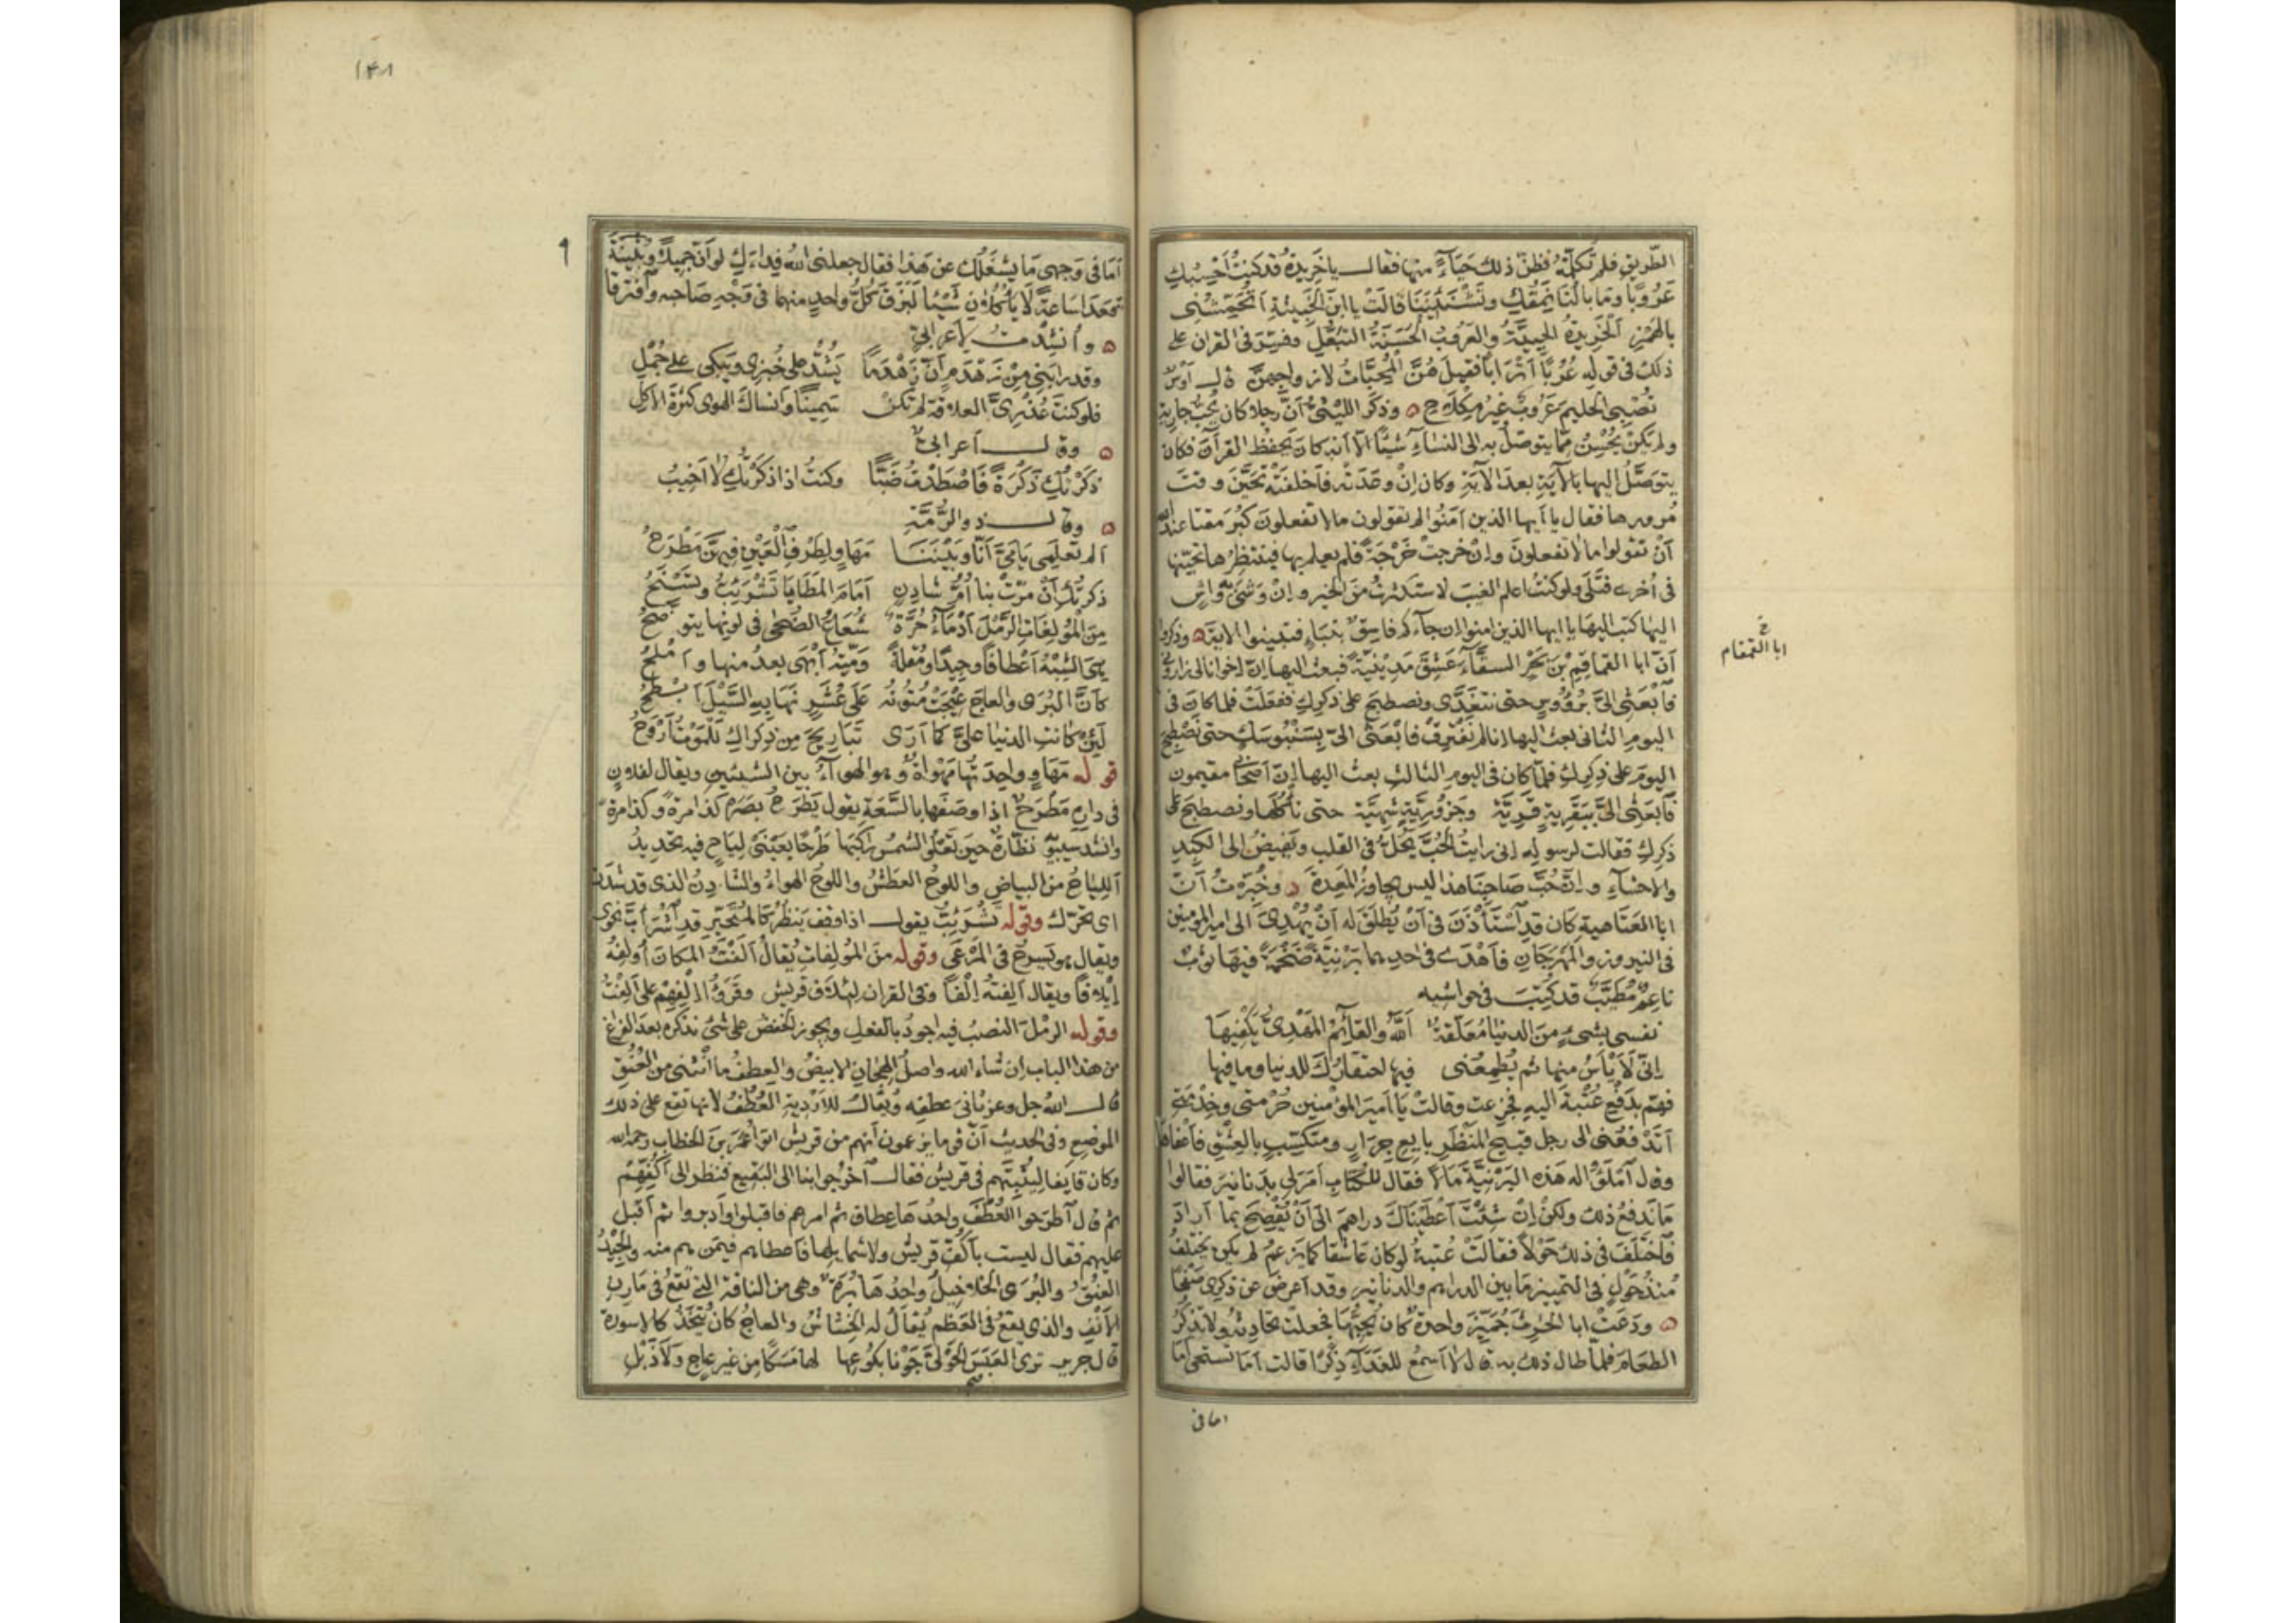 الطّريق فلم تكلّمه فظنّ ذلك حَيَاءً منها فقال يا خَرِيدةُ قد كنتُ اَحْسِبُكِ
عَرُوبًا وما بالُنَا نَمِقُكِ وتَشْنَئِينَنَا قالَتْ يا ابن الخَبيثةِ اَتُجَمِّشُنِى
بالهَمْزِ الخَرِيدةُ الحيِيَّةُ والعَرُوبُ الحَسَنَةُ التَبَعُّلِ وفُسِّرَ فى القران على
ذلك فى قوله عُرُبًا اَتْرَابًا فقيل هُنَّ المُحِبَّاتُ لازواجهنّ قال اَوْسٌ
تُصْبِى الحليمَ عَرُوبٌ غيرُ مِكْلَاحِ وذكَر اللَيْثىُّ اَنَّ رجلا كان يُحِبُّ جارية
ولم يَكُنْ يُحْسِنُ ممّا يتوصّلُ به الى النساءِ شيئًا الّا انه كان يَحفظ القرآنَ فكان
يتوَصَّلُ اليها بالآيَةِ بعدَ الآيَةِ وكان اِنْ وعَدَتْه فاَخلفَتْه تَحَيَّنَ وقتَ
مُرورها فقال يا اَيها الذين آمَنُوا لم تقولون ما لا تفعلونَ كبُرَ مقتا عند الله
اَنْ تقولوا ما لا تفعلونَ واِنْ خرجتْ خَرْجَةً فلم يعلم بها فينتظِرُها تحيّنها
فى اُخرى فتَلَى ولو كنتُ اعلم الغيبَ لاستكثرتُ منَ الخير واِنْ وَشَىَ وَاشٍ
اليها كتب اليها يا ايها الذين امنوا ان جآءكم فاسِقٌ بنَبَاءٍ فتبيّنوا الاية وذكروا
اَنّ ابا القماقِمِ بْنَ بَحْرٍ السقّآءَ عشِقَ مَدِينِيّةً فبعث اليها اِنّ اخوانا لى زارونى
فاَبْعَثِى الىَّ برُؤُوسٍ حتى نتغَدَّى ونصطبحَ على ذكركِ ففعَلَتْ فلما كان فى
اليومِ الثانى بعث اليها انا لم نَفْتَرِقْ فاَبْعَثِى الىّ بسَنْبُوسَكٍ حتى نَصْطبح
اليومَ على ذِكركِ فلمّا كان فى اليومِ الثالثِ بعث اليها اِنّ اَصحابى مقيمون
فاَبعَثِى الىَّ ببَقَرِيةٍ قَدِيّة وجَزُورِيَّةٍ شهيَّة حتى ناْكُلَها ونصطبحَ على
ذكركِ فقالت لرسوله اِنى رايتُ الحُبَّ يَحُلّ فى القلب ويَفِيضُ الى الكَبِدِ
والاحشآءِ واِنّ حُبَّ صَاحِبِنَا هذا ليس يجاوزُ المَعِدةَ وخُبِّرْتُ اَنّ
ابا العَتَاهيةِ كان قدِ اَسْتَاْذَنَ فى اَنْ يُطلَقَ له اَنْ يُهْدِىَ الى امير المؤمنين
فى النيروز والمَهْرجَانِ فاَهْدَى فى احدِهما بَرْنِيّةً ضَخْمَةً فيها ثوبٌ
ناعِمٌ مُطَيَّبٌ قد كتَبَ فى حواشيه
نفسى بشىءٍ منَ الدنيا مُعَلّقَةٌ اَللهُ والقائِمُ المَهْدِىُّ يَكْفِيهَا
اِنّى لَاَيْاَسُ منها ثم يُطمِعُنى فيها احتقارُكَ للدنيا وما فيها
فهَمّ بدَفْعِ عُتْبةَ اليه فجزِعت وقالتْ يا اميرَ المؤمنين حُرْمتى وخِدْمَتى
اَتَدْفعُنى الى رجل قبيحِ المَنْظَرِ بايعِ جِرارٍ ومتكسّبٍ بالعِشْقِ فاَعفاها
وقال اَمْلَؤُا له هذه البَرْنيَّةَ مَالًا فقال للكُتّابِ اَمَرَ لى بدَنانيرَ فقالوا
مَا نَدفعُ ذلك ولكنْ اِنْ شئْتَ اَعْطَيْنَاكَ دراهمَ الى اَنْ يُفْصِحَ بما اراد
فاَختلَفَ فى ذلك حَوْلًا فقالتْ عُتبةُ لو كان عَاشقا كما يَزعمُ لم يكن يختلفُ
مُنْذُ حَوْلٍ فى التمييز مَا بين الدراهم والدنانير وقد اَعرضَ عن ذكرى صَفْحًا
ودَعَتْ ابا الحٰرثِ جُمَّيْزَ واحدةٌ كان يُحِبُّهَا فجعلتْ تحَادِثُه ولا تَذْكُرُ
الطعَامَ فلمّا طال ذلك به قال لا اَسمعُ للغَدَآءِ ذِكْرًا قالت اَمَا تستحى اَمَا
خ
ابا القمقام
اما فى
١٤٨
٩
اَمَا فى وَجهى مَا يَشغَلُك عن هَذا فقال جعلنى الله فِداءَكِ لو اَنّ جميلاً وبُثَيْنَةَ
قعَدَا سَاعَةً لَا يَاْكلانِ شَيْئًا لَبَزَقَ كُلُّ واحدٍ منهما فى وَجْهِ صَاحبِه وافترقا
واُنشِدْتُ لاَعرابىّ
وقد رابَنِى مِنْ زَهْدَمٍ اَنّ زَهْدَمًا يَشُدُّ على خُبزِى ويَبكى على جُمْلِ
فلو كنتَ عُذْرِىَّ العلاقة لم تكنْ سَمِينًا وَاَنساكَ الهوى كثرَةَ الاَكْلِ
وقال اَعرابىّ
ذكَرْتُكِ ذُكْرَةً فَاصْطَدْتُ ضَبًّا وكنتُ اذا ذكَرْتُكِ لا اَخِيبُ
وقال ذو الرُّمَّةِ
اَلم تعلَمِى يَامَىَّ اَنّا وبَيْنَنَا مَهَاوٍ لِطَرْفِ العَيْنِ فِيهِنَّ مَطْرَحُ
ذكرتُكِ اَنْ مَرّتْ بنا اُمُّ شادِنٍ اَمَامَ المَطَايَا تَشْرَئِبُّ وتَسْنَحُ
مِنَ المُؤلِفَاتِ الرَّمْلَ اَدْمَآءُ حُرَّةٌ شُعَاعُ الضُحَى فى لونها يتوضّحُ
هِىَ الشِبْهُ اَعْطَافًا وجِيدًا ومُقْلَةً ومَيَّةُ اَبْهَى بعدُ منها واَمْلَحُ
كاَنّ البُرَى والعاجَ عِيجَتْ مُتُونُه عَلَى عُشَرٍ نهَا بهِ السَّيْلَ اَبْطَحُ
لَئِنْ كانتِ الدنيا علىَّ كما اَرَى تَبَارِيحَ من ذِكراكِ لَلْمَوْتُ اَرْوَحُ
قوله مَهَاوٍ واحِدَتُها مَهْوَاةٌ وهو الهواءُ بين الشيئين ويقال لفلانٍ
فى دارِه مَطْرَحٌ اذا وصَفَها بالسَّعَةِ يقول يَطْرَحُ بصَرَه كذا مرةً وكذا مرةً
وانشد سيبويه نظّارَةٌ حِينَ تَعْلُو الشمسُ راكِبَها طَرْحًا بعَيْنَىْ لِيَاحٍ فيه تحديدُ
اَللِيَاحُ من البياضِ واللوحُ العطَشُ واللوحُ الهواءُ والشادِنُ الذى قد شَدَنَ
اى تحرّك وقوله تَشْرَئِبُّ يقول اذا وقف ينظُرُ كالمُتحَيّرِ قدِ اَشْرَاَبَّ نحوى
ويقال هو يَسرحُ فى المَرْعَى وقوله منَ المُؤلِفاتِ يُقالُ آلَفْتُ المكانَ اُولِفُه
اِيلافًا ويقال اَلِفتُه اِلْفًا وفى القران لِيلَافِ قريشٍ وقَرَؤُا اِلْفِهِمْ على اَلِفْتُ
وقوله الرمْلَ النصبُ فيه اجودُ بالفعل ويجوز الخفضُ على شىءٍ نذكره بعد الفراغِ
من هذا الباب اِن شاء الله واصلُ الهِجَانِ الابيضُ والعِطفُ ما انثنى من العُنُقِ
قال اللهُ جل وعز ثانِىَ عِطفِه ويُقالُ للاَرْدِيةِ العُطُفُ لانها تقع على ذلك
الموضعِ وفى الحديث اَنّ قوما يزعمون اَنهم من قريش اتوا عُمَرَ بنَ الخطاب رحمه الله
وكان قايفا ليُثْبِتَهم فى قريش فقال اَخرُجوا بنا الى البقيع فنظر الى اَكُفّهِمْ
ثم قال اَطرَحوا العُطُفَ واحدُها عِطاف ثم امرهم فاقبلوا واَدبروا ثم اَقبل
عليهم فقال ليست باَكُفّ قريش ولا شمايلها فاعطاهم فيمَن هم منه والجِيْدُ
العُنُقُ والبُرَى الخلاخيلُ واحدُها بُرَةٌ وهى من الناقة التى تقعُ فى مَارِنِ
الاَنْفِ والذى يقعُ فى العَظْم يُقالُ له الخِشاشُ والعاجُ كان يُتّخَذُ كالاسورة
قال جرير ترى العَبَسَ الحَوْلىَّ جَوْنا بكُوعِها لها مَسَكًا من غير عاجٍ ولا ذَبْلِ